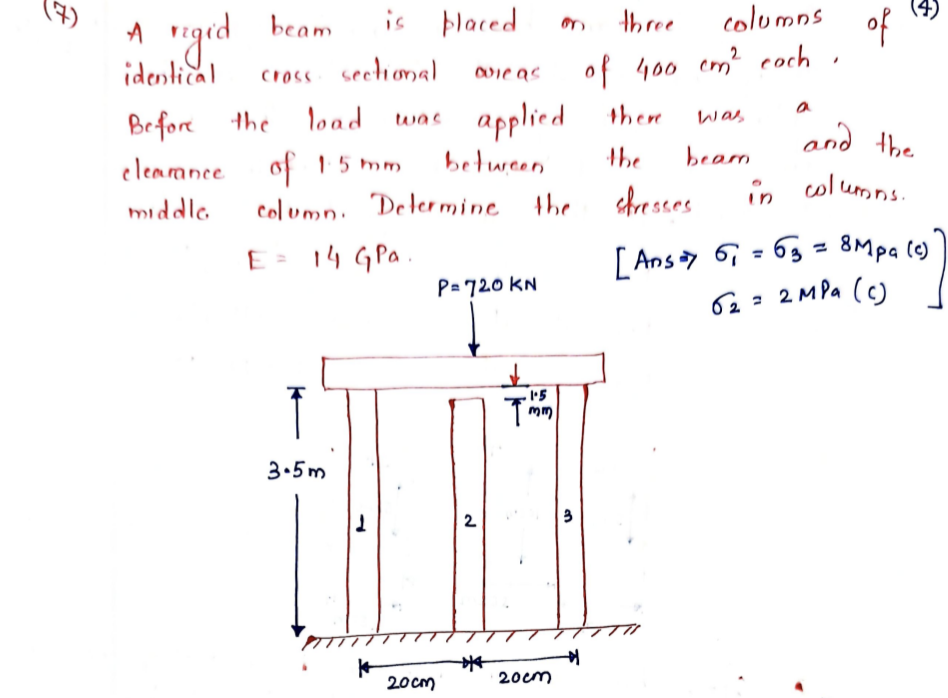 (7) A rigid beam is placed on three columns of (4)
identical cross sectional areas of 400 cm² each.
Before the load was applied there was a
clearance of 1.5 mm between the beam and the
middle column. Determine the stresses in columns.
E = 14 GPa.
[Ans ⇒ σ₁ = σ₃ = 8Mpa (c)
σ₂ = 2 MPa (c)]
P=720 KN
1.5
mm
3.5m
1
2
3
20cm
20cm